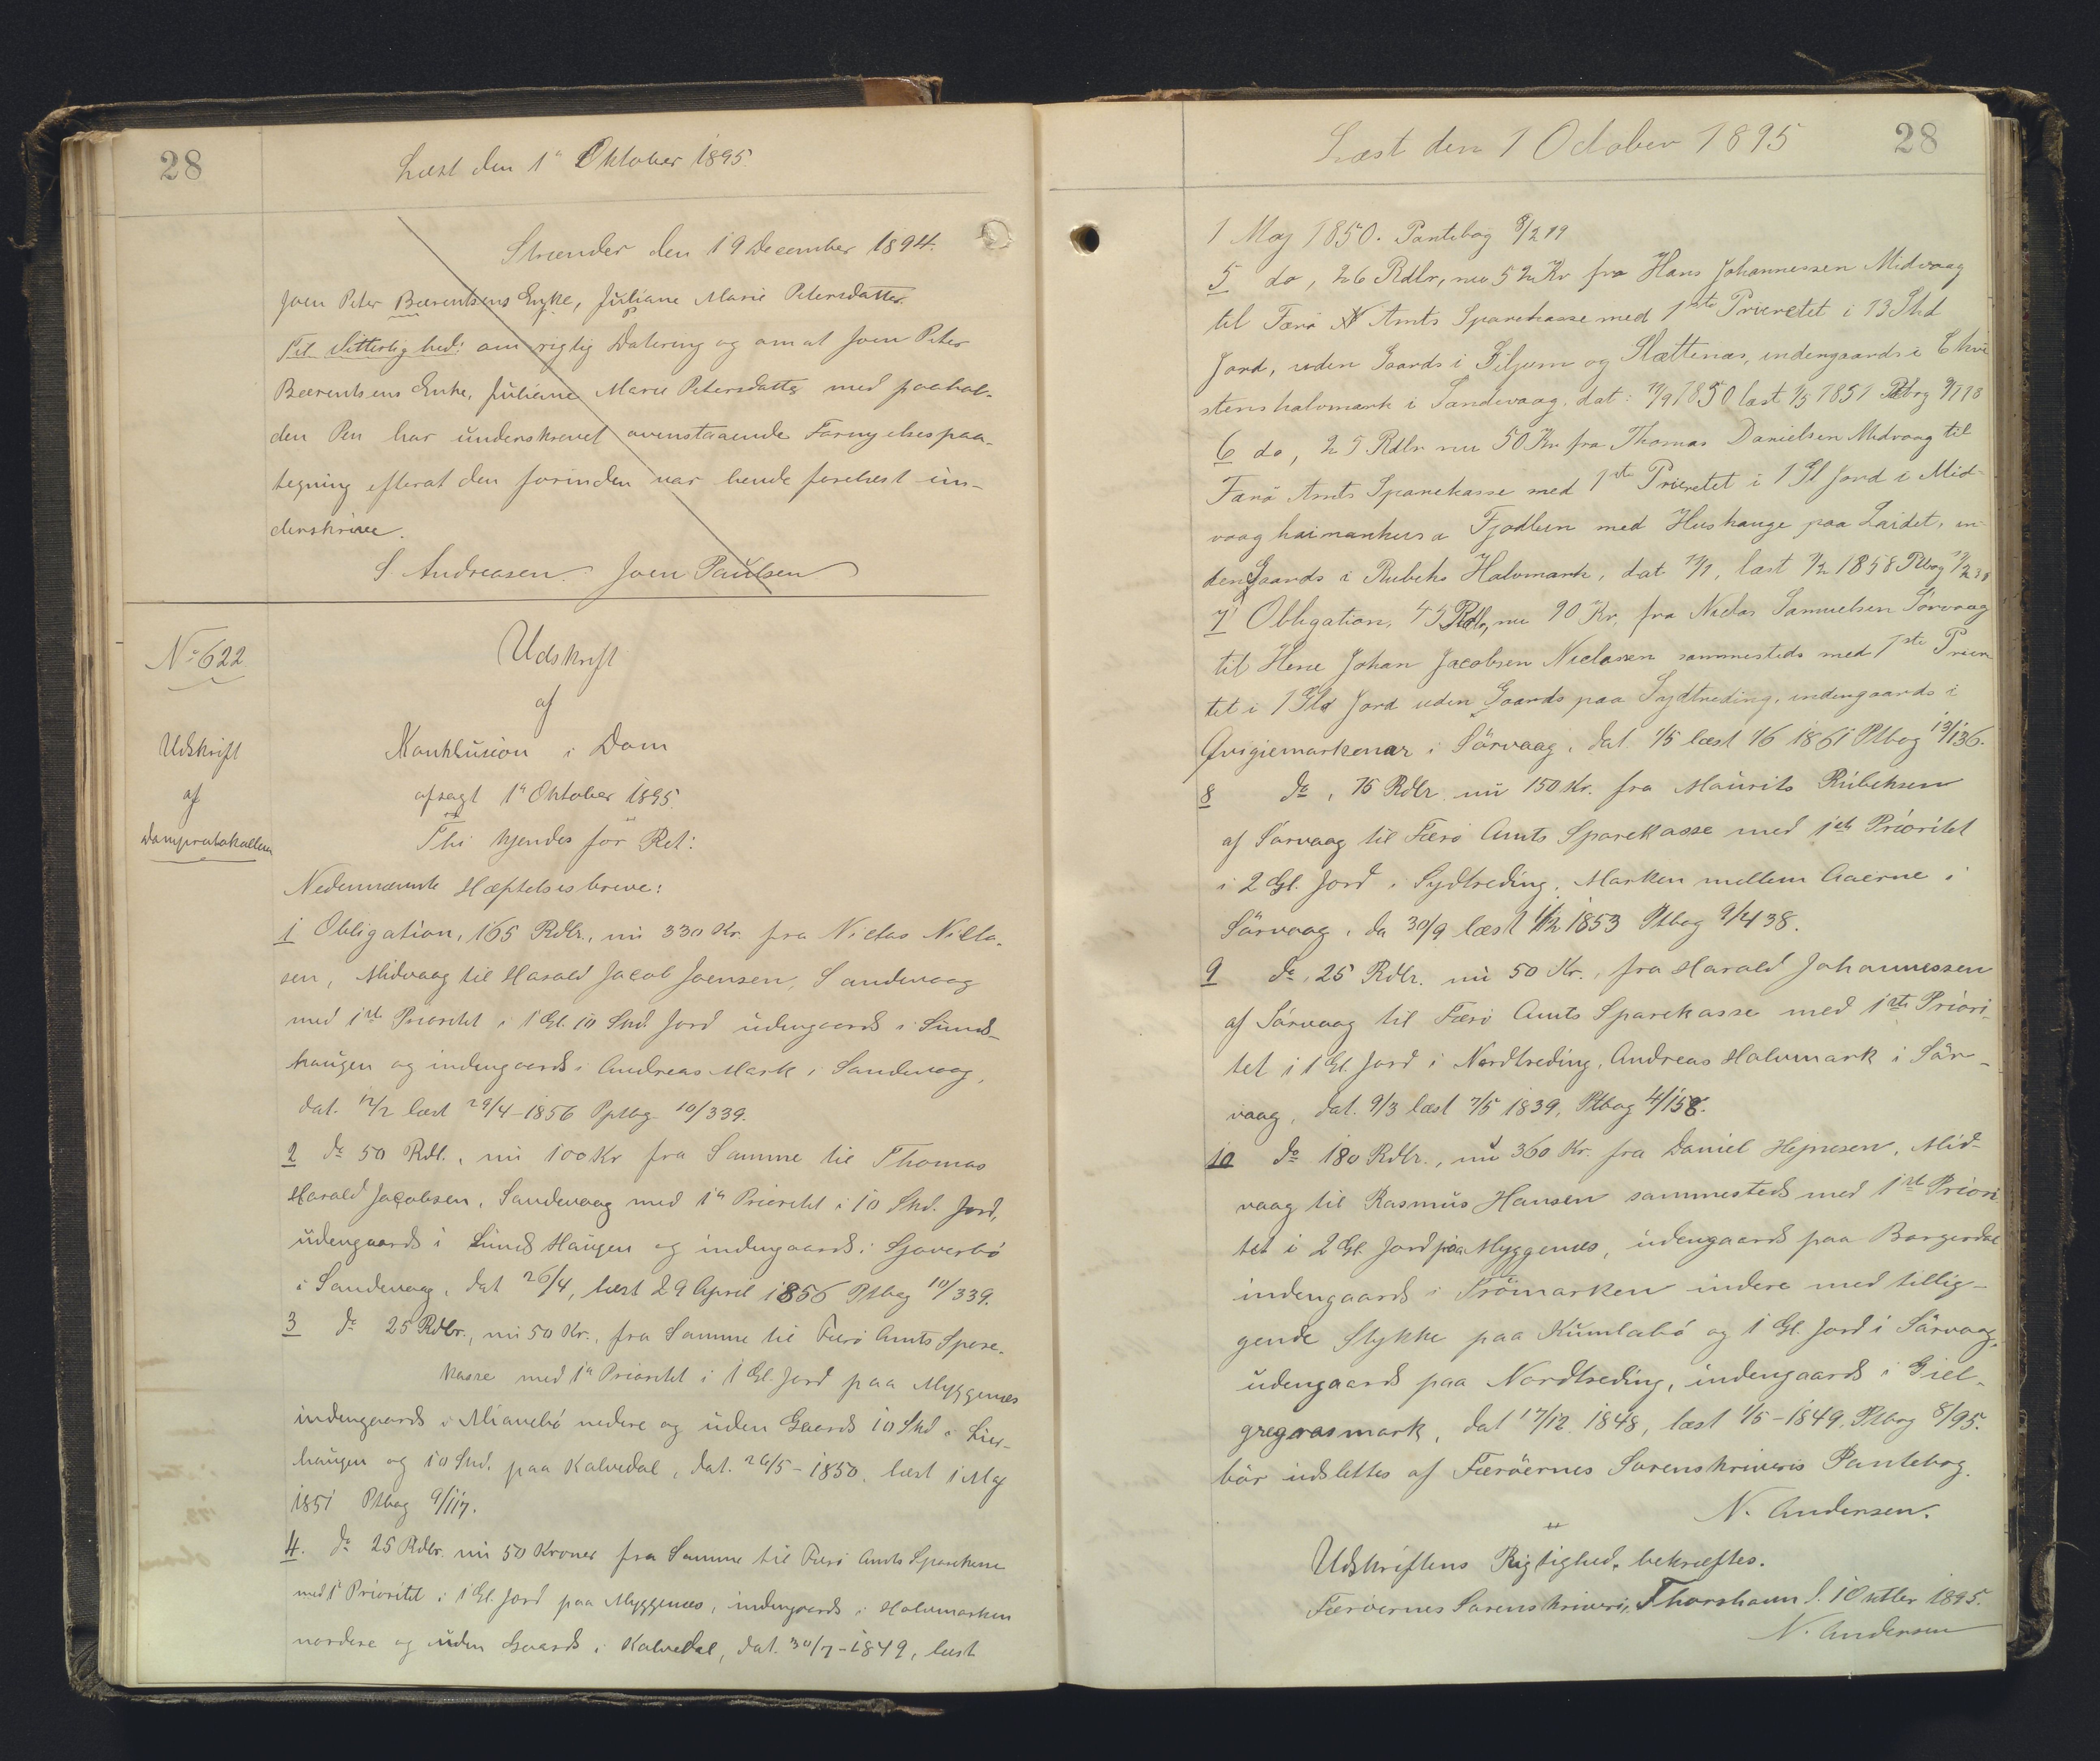 28
Læst den 1ª Oktober 1895.
Strænder den 19 December 1894.
Joen Peter Bærentsens Enke, Juliane Marie Petersdatter
Til Vitterlighed: om rigtig Datering og om at Joen Peter
Bærentsens Enke, Juliane Marie Petersdatter med paahol-
den Pen har underskrevet ovenstaaende Fornyelsespaa-
tegning efterat den forinden var hende forelæst un-
derskrive.
S Andreasen. Joen Paulsen
No 622
Udskrift
af
Domprotokollen
Udskrift
af
Konklusion i Dom
afsagt 1ª Oktober 1895.
Thi kjendes for Ret:
Nedennævnte Hæftelsesbreve:
1 Obligation, 165 Rdlr., nu 330 Kr. fra Niclas Nicla-
sen, Midvaag til Harald Jacob Joensen, Sandevaag
med 1ste Prioritet i 1 Gl. 10 Skd. Jord udengaards i Lunds-
haugen og indengaards i Andreas Mark i Sandevaag,
dat. 12/2 læst 29/4-1856 Pptbg 10/339.
2 do 50 Rdl., nu 100 Kr fra Samme til Thomas
Harald Jacobsen, Sandevaag med 1ª Prioritet i 10 Skd. Jord,
udengaards i Lunds Haugen og indengaards i Gjoverbö
i Sandevaag, dat 26/4, læst 29 April 1856 Ptbog 10/339.
3 do 25 Rdlr., nu 50 Kr., fra Samme til Færö Amts Spare-
kasse med 1ª Prioritet i 1 Gl. Jord paa Myggenæs
indengaards i Mianebö nedere og uden Gaards 10 Skd i Lier-
haugen og 10 Skd. paa Kalvedal, dat. 26/5-1850, læst 1 Maj
1851 Ptbog 9/117.
4. do 25 Rdlr. nu 50 Kroner fra Samme til Færö Amts Sparekasse
med 1 Prioritet i 1 Gl. Jord paa Myggenæs, indengaards i Halvmarken
nordere og uden Gaards i Kalvedal, dat. 30/7-1849, læst
Læst den 1 October 1895
28
1 Maj 1850. Pantebog 8/219
5 do, 26 Rdlr, nu 52 Kr fra Hans Johannessen Midvaag
til Færö Amts Sparekasse med 1ste Prioretet i 13 Skd
Jord, uden Gaards i Giljum og Slættenæs, indengaards i
stens halvmark i Sandevaag. dat: 1850 læst 1/5 1851 Ptbog
6 do, 25 Rdlr nu 50 Kr fra Thomas Danielsen Midvaag til
Færö Amts Sparekasse med 1ste Prioretet i 1 Gl Jord i Mid-
vaag Fjodlum med Hushauge paa Laidet, in-
den Gaards i Rubeks Halvmark, dat læst 1858 Ptbog
7 Obligation, 45 Rdlr, nu 90 Kr, fra Niclas Samuelsen Sörvaag
til Herre Johan Jacobsen Niclassen sammesteds med 1ste Priori
tet i 1 Gld Jord uden Gaards paa Sydtreding, indengaards i
Qvigiemarkenar i Sörvaag, dat. 1/5 læst 1/6 1861 Ptbog 13/136.
8 do, 75 Rdlr. nu 150 Kr. fra Maurits Rubeksen
af Sörvaag til Færö Amts Sparekasse med 1ste Prioritet
i 2 Gl. Jord i Sydtreding, Marken mellem Aaerne i
Sörvaag, da 30/9 læst 1853 Ptbog 9/438.
9 do, 25 Rdlr. nu 50 Kr., fra Harald Johannessen
af Sörvaag til Færö Amts Sparekasse med 1ste Priori-
tet i 1 Gl. Jord i Nordtreding, Andreas Halvmark i Sör-
vaag, dat. 9/3 læst 7/5 1839, Ptbog 4/158.
10 do 180 Rdlr., nu 360 Kr. fra Daniel Hejnesen, Mid-
vaag til Rasmus Hansen sammesteds med 1ste Priori
tet i 2 Gl. Jord paa Myggenæs, udengaards paa Borgerdal
indengaards i Trömarken indere med tillig-
gende Stykke paa Kumlabö og 1 Gl. Jord i Sörvaag,
udengaards paa Nordtreding, indengaards i Giel-
gregorasmark, dat 17/12 1848, læst 1/5-1849, Ptbog 8/95.
bör udslettes af Færöernes Sorenskriveris Pantebog.
N. Andersen.
Udskriftens Rigtighed bekræftes.
Færöernes Sorenskriveri, Thorshavn d. 1 Oktbr 1895.
N. Andersen